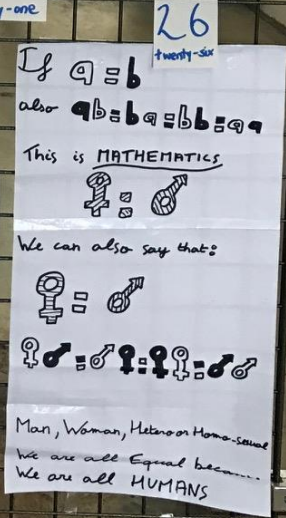 y-one
26
twenty-six
If a = b
also ab = ba = bb = aa
This is MATHEMATICS
♀ = ♂
We can also say that:
♀ = ♂
♀♂ = ♂♀ = ♀♀ = ♂♂
Man, Woman, Hetero or Homo-sexual
We are all Equal
We are all HUMANS